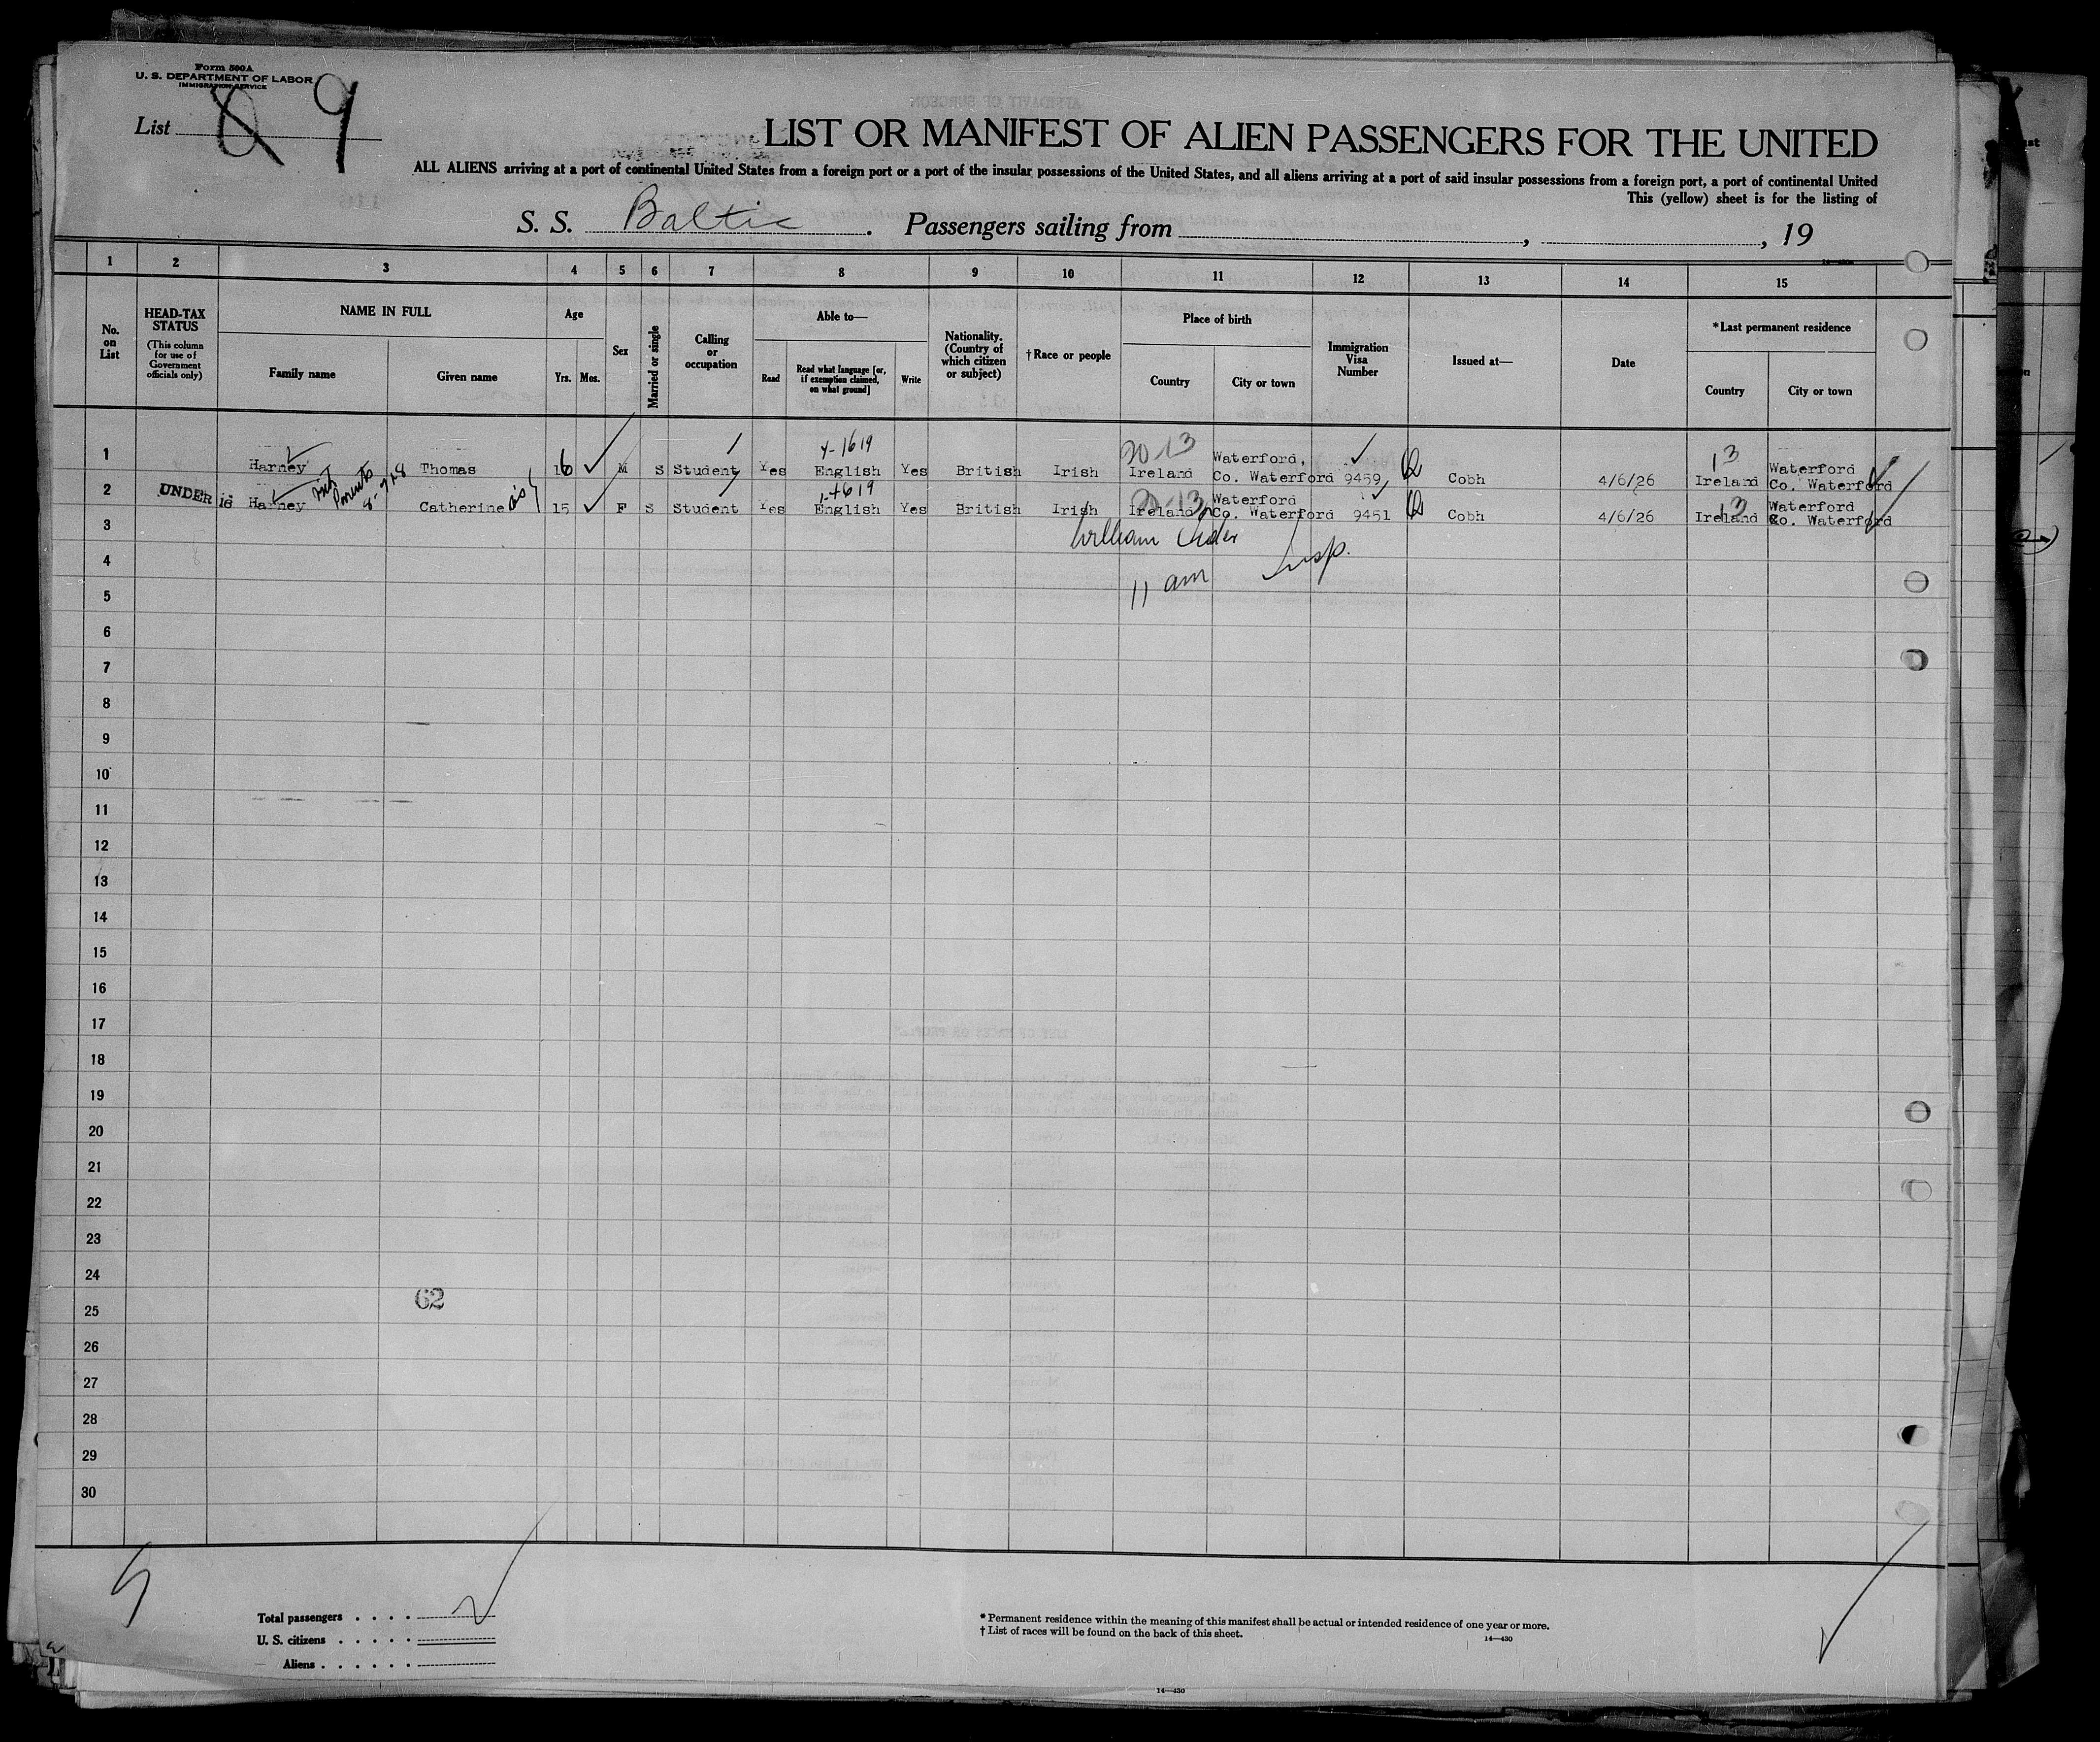 Form 500A
U. S. DEPARTMENT OF LABOR
IMMIGRATION SERVICE
List 9
LIST OR MANIFEST OF ALIEN PASSENGERS FOR THE UNITED
ALL ALIENS arriving at a port of continental United States from a foreign port or a port of the insular possessions of the United States, and all aliens arriving at a port of said insular possessions from a foreign port, a port of continental United
This (yellow) sheet is for the listing of
S. S. Baltic. Passengers sailing from , , 19
14—430
1 2 3 4 5 6 7 8 9 10 11 12 13 14 15
No. on List
HEAD-TAX STATUS
(This column for use of Government officials only)
NAME IN FULL
Family name
Given name
Age
Yrs. Mos.
Sex
Married or single
Calling or occupation
Able to—
Read
Read what language [or, if exemption claimed, on what ground]
Write
Nationality. (Country of which citizen or subject)
†Race or people
Place of birth
Country
City or town
Immigration Visa Number
Issued at—
Date
*Last permanent residence
Country
City or town
4-1619
20-13
13
1 Harney Thomas 16 M S Student Yes English Yes British Irish Ireland Waterford, Co. Waterford 9459 Cobh 4/6/26 Ireland Waterford Co. Waterford
1-4619
20-13
13
2 UNDER 16 Harney Catherine sis 15 F S Student Yes English Yes British Irish Ireland Waterford Co. Waterford 9451 Cobh 4/6/26 Ireland Waterford Co. Waterford
3
William Insp.
4
11 am
5
6
7
8
9
10
11
12
13
14
15
16
17
18
19
20
21
22
23
24
62
25
26
27
28
29
30
Total passengers . . . . 2
U. S. citizens . . . . .
Aliens . . . . . .
* Permanent residence within the meaning of this manifest shall be actual or intended residence of one year or more.
† List of races will be found on the back of this sheet.
14—430
14—430